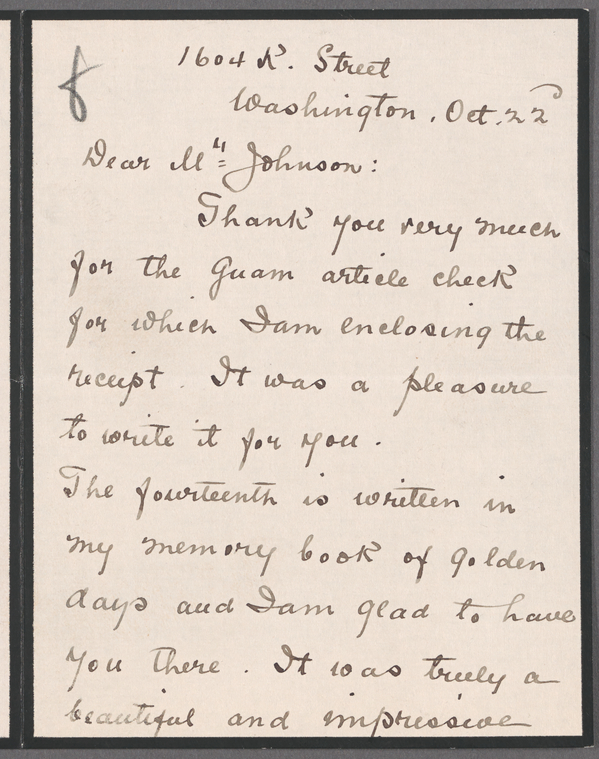 1604 K. Street
Washington, Oct. 22
Dear Mr. Johnson:
Thank you very much
for the Guam article check
for which I am enclosing the
receipt. It was a pleasure
to write it for you.
The fourteenth is written in
my memory book of golden
days and I am glad to have
you there. It was truly a
beautiful and impressive